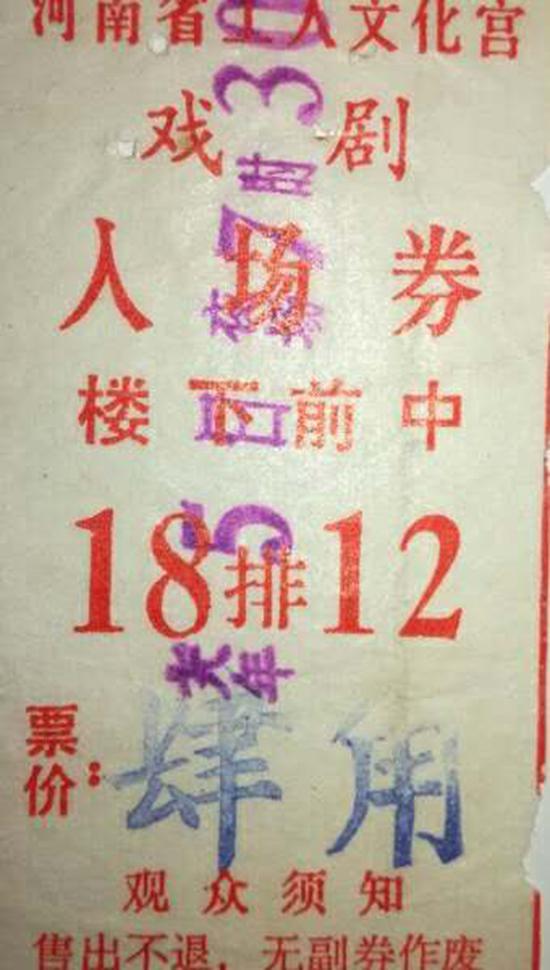 河南省工人文化宫
戏剧
入场券
楼下前中
18排12
票价:肆角
观众须知
售出不退,无副券作废